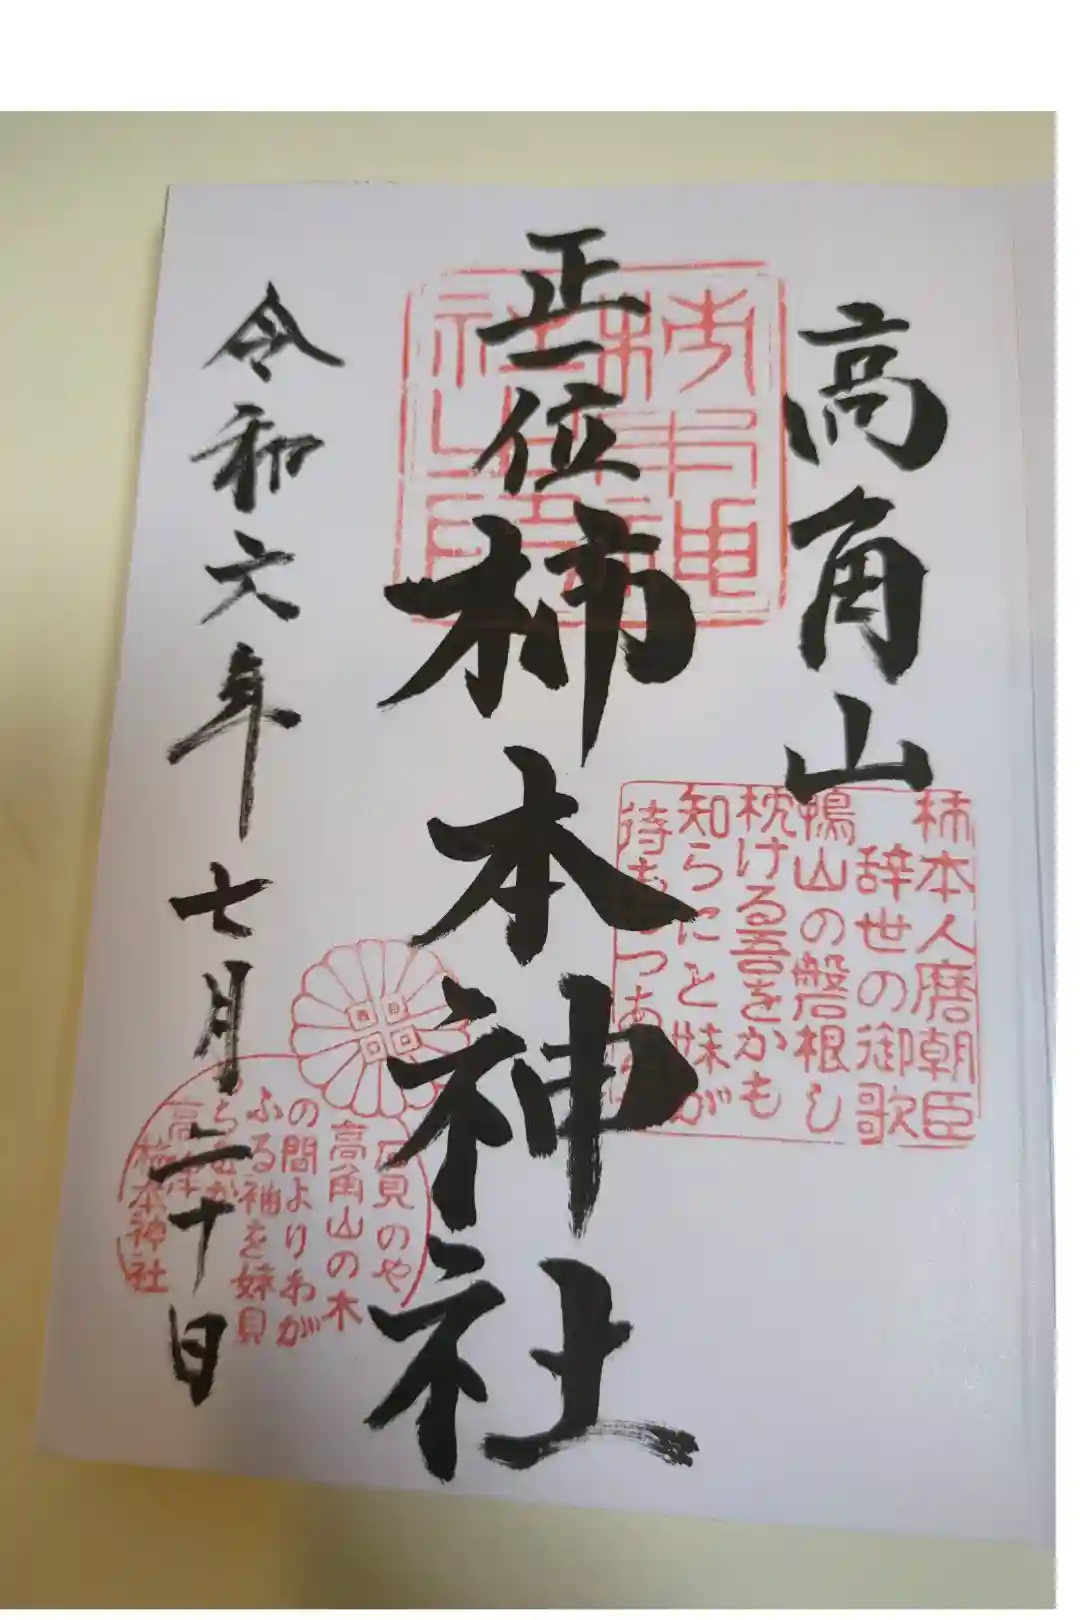 高角山
正一位
柿本神社
令和六年七月二十日
柿本人麿朝臣
辞世の御歌
鴨山の磐根し
枕ける吾をかも
知らにと妹が
待ちつつあ
石見のや
高角山の木
の間よりわが
ふる袖を妹見
つらむか
高津
柿本神社